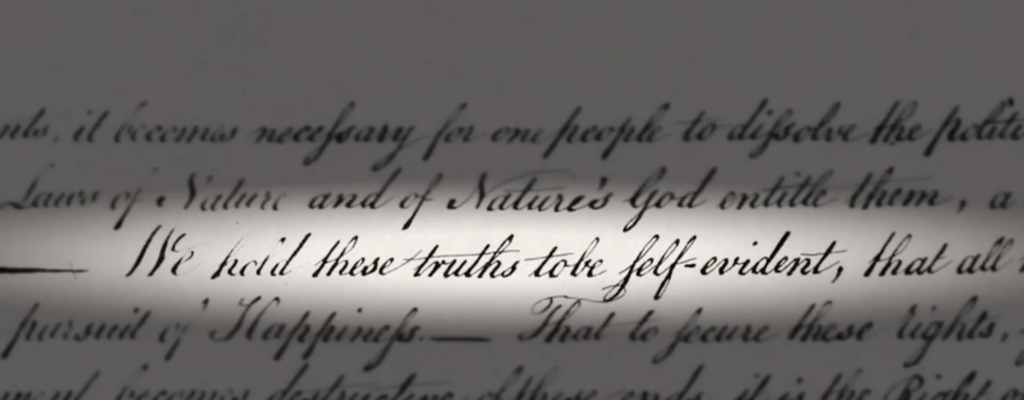 nts, it becomes neceſsary for one people to diſsolve the politi
Laws of Nature and of Nature's God entitle them, a
— We hold these truths to be ſelf-evident, that all
pursuit of Happineſs. — That to ſecure these rights,
ment becomes destructive of these ends, it is the Right o